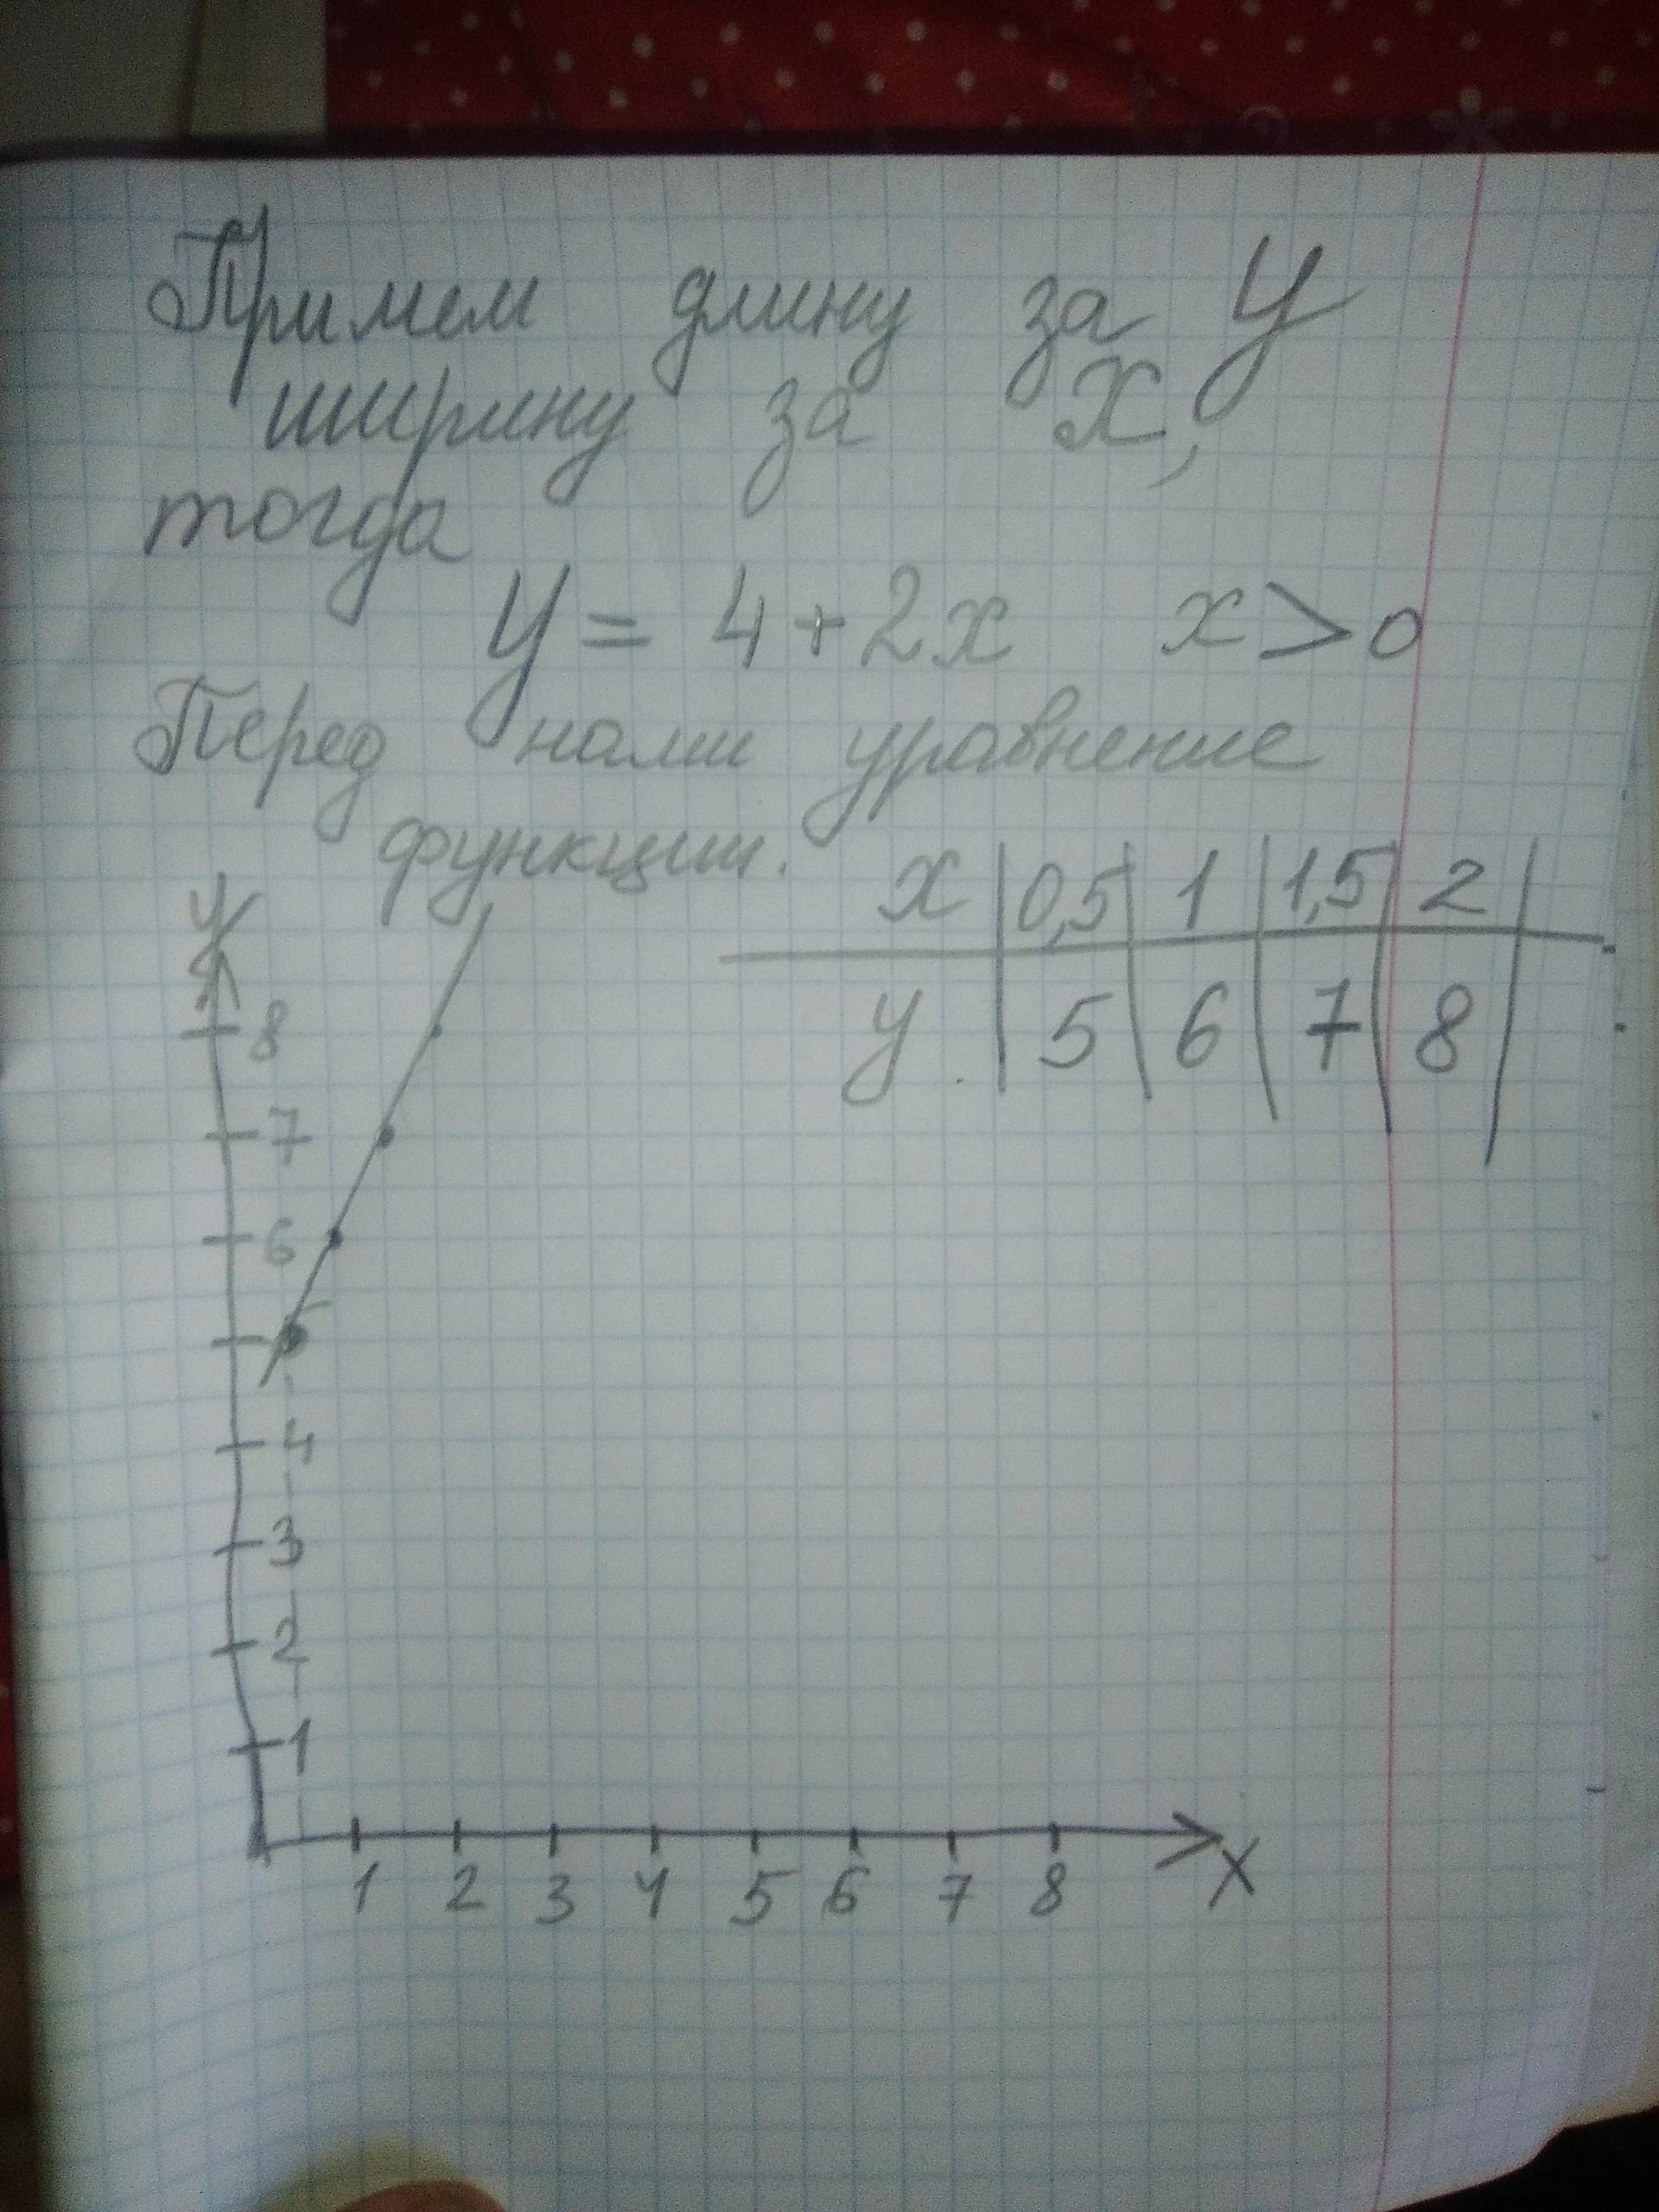 Примем длину за y
ширину за x,
тогда
y = 4 + 2x x > 0
Перед нами уравнение
функции.
x | 0,5 | 1 | 1,5 | 2 |
y | 5 | 6 | 7 | 8 |
y
8
7
6
5
4
3
2
1
1 2 3 4 5 6 7 8 x